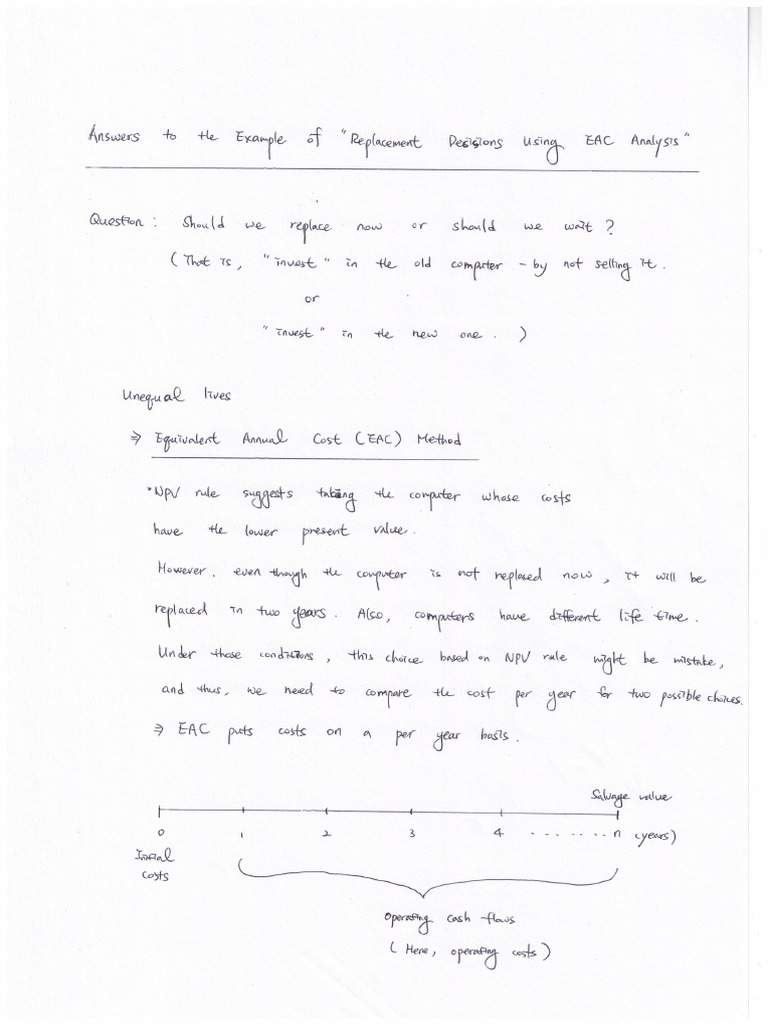 Answers to the Example of "Replacement Decisions Using EAC Analysis"
Question : Should we replace now or should we wait ?
(That is, "invest" in the old computer - by not selling it.
or
"invest" in the new one. )
Unequal lives
⇒ Equivalent Annual Cost (EAC) Method
• NPV rule suggests taking the computer whose costs
have the lower present value.
However, even though the computer is not replaced now, it will be
replaced in two years. Also, computers have different life time.
Under those conditions, this choice based on NPV rule might be mistake,
and thus, we need to compare the cost per year for two possible choices.
⇒ EAC puts costs on a per year basis.
Salvage value
0 1 2 3 4 ....... n (years)
Initial
costs
Operating cash flows
( Here, operating costs )